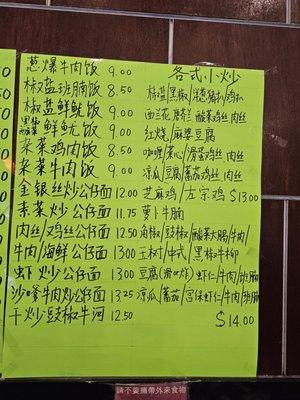 葱爆牛肉饭 9.00
椒盐班腩饭 8.50
椒盐鲜鱿饭 9.00
鲜鱿饭 9.00
菜鸡肉饭 8.50
菜牛肉饭 9.00
金银丝炒公仔面 12.00
素菜炒公仔面 11.75
肉丝/鸡丝公仔面 12.50
牛肉/海鲜公仔面 13.00
虾炒公仔面 13.00
沙嗲牛肉炒公仔面 13.25
干炒豉椒牛河 12.50
各式小炒
椒盐/黑椒/鸡扒
西兰花 鸡丝 肉丝
红烧/麻婆豆腐
咖喱/菜心/滑蛋鸡丝 肉丝
凉瓜/豆腐/蕃茄鸡丝 肉丝
芝麻鸡/左宗鸡 $13.00
萝卜牛腩
豉椒/酸菜大肠/牛肉/
中式/黑椒牛柳
豆腐/虾仁/牛肉/班腩
凉瓜/蕃茄/宫保虾仁/牛肉/班腩
$14.00
請不要攜帶外來食物